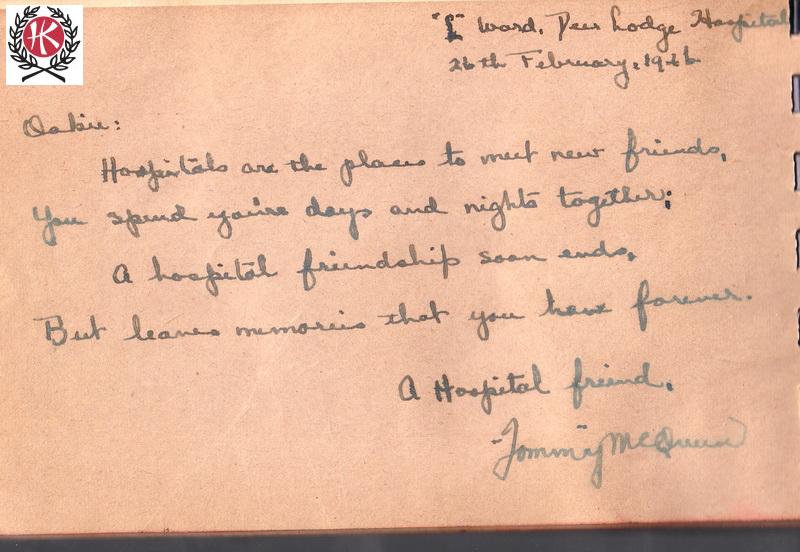 HK
"E" Ward, Deer Lodge Hospital
26th February, 1946
Oakie:
Hospitals are the places to meet new friends,
You spend you're days and nights together;
A hospital friendship soon ends,
But leaves memories that you have forever.
A Hospital friend,
"Tommy" McQueen